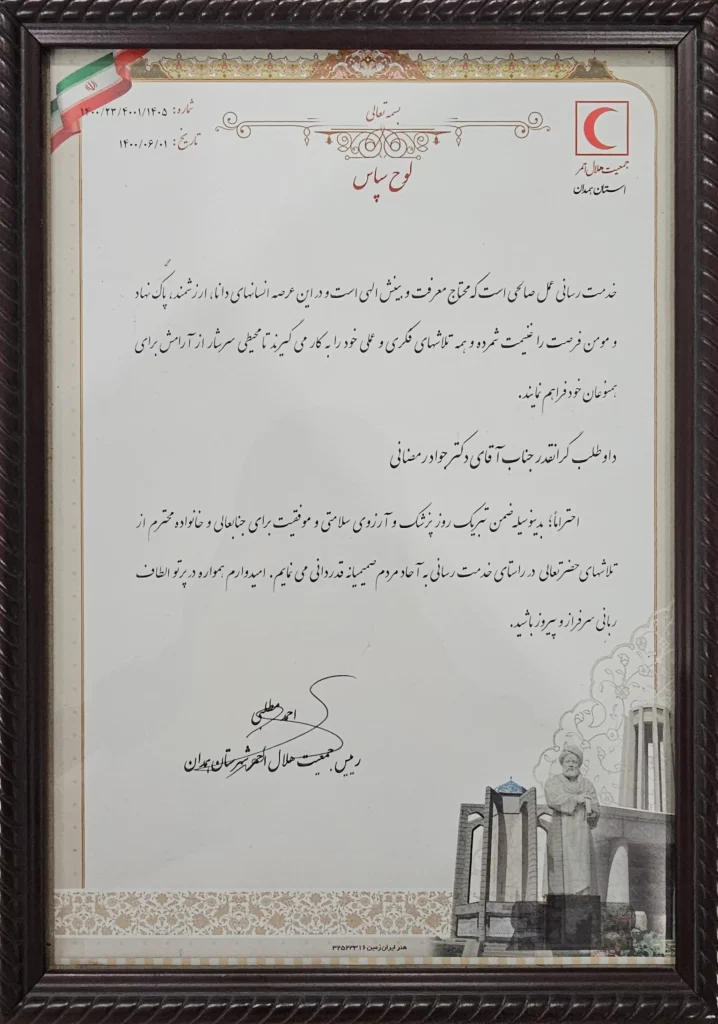 بسمه تعالی
شماره: ۱۴۰۰/۲۳/۴۰۰۱/۱۴۰۵
تاریخ: ۱۴۰۰/۰۶/۰۱
جمعیت هلال احمر
استان همدان
لوح سپاس
خدمت رسانی عمل صالحی است که محتاج معرفت و بینش الهی است و در این عرصه انسانهای دانا، ارزشمند، پاک نهاد
و مومن فرصت را غنیمت شمرده و همه تلاشهای فکری و عملی خود را به کار می گیرند تا محیطی سرشار از آرامش برای
همنوعان خود فراهم نمایند.
داوطلب گرانقدر جناب آقای دکتر جواد رمضانی
احتراماً؛ بدینوسیله ضمن تبریک روز پزشک و آرزوی سلامتی و موفقیت برای جنابعالی و خانواده محترم از
تلاشهای حضرتعالی در راستای خدمت رسانی به آحاد مردم صمیمیانه قدردانی می نمایم. امیدوارم همواره در پرتو الطاف
ربانی سرفراز و پیروز باشید.
احمد مطلبی
رییس جمعیت هلال احمر شهرستان همدان
هنر ایران زمین ۳۲۵۲۲۳۱۶